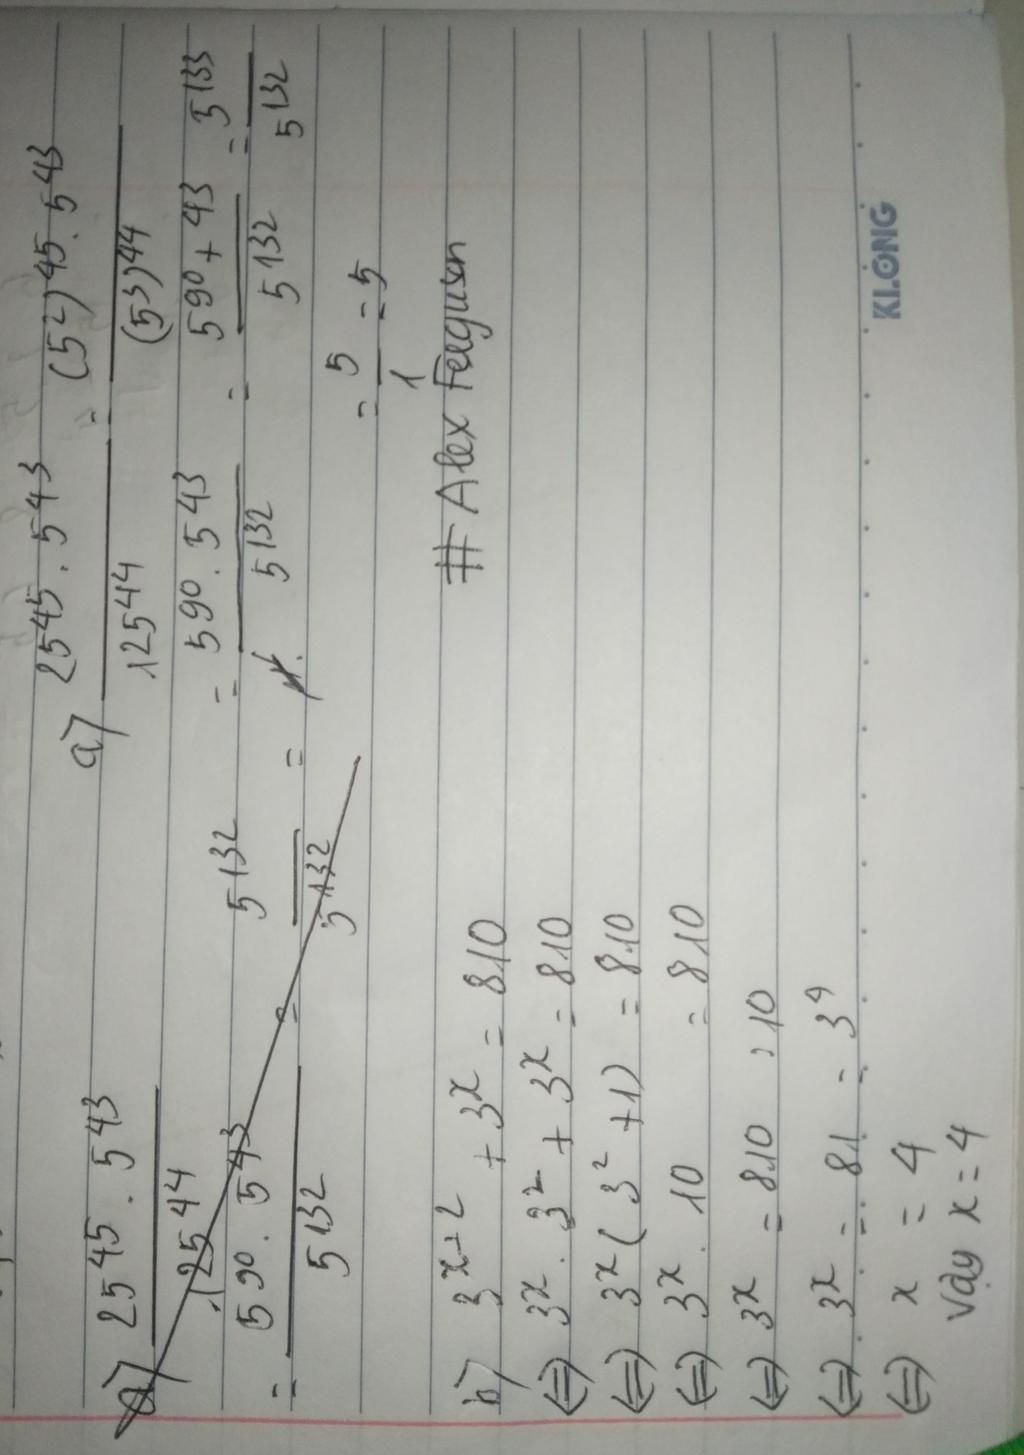 a) 25^45 . 5^43 / 125^44
= 5^90 . 5^43 / 5^132 = 5^132 / 5^132 =
a) 25^45 . 5^43 / 125^44 = (5^2)^45 . 5^43 / (5^3)^44
= 5^90 . 5^43 / 5^132 = 5^90+43 / 5^132 = 5^133 / 5^132
= 5 / 1 = 5
# Alex Ferguson
b) 3^x+2 + 3^x = 810
⇔ 3^x . 3^2 + 3^x = 810
⇔ 3^x ( 3^2 + 1) = 810
⇔ 3^x . 10 = 810
⇔ 3^x = 810 : 10
⇔ 3^x = 81 = 3^4
⇔ x = 4
Vậy x = 4
KLONG